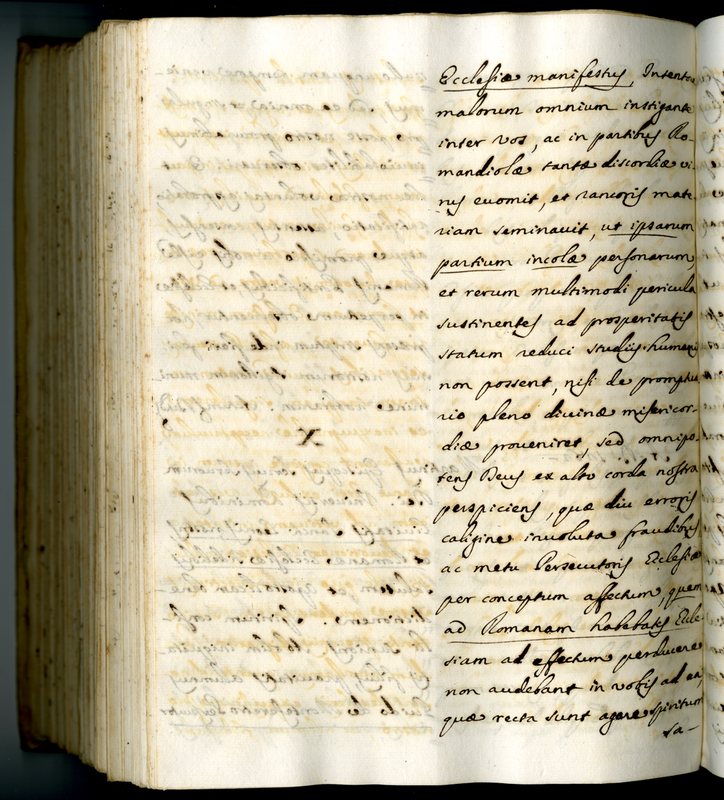 Ecclesiæ manifestus, Intentor
malorum omnium instigante
inter vos, ac in partibus Ro-
mandiolæ tantæ discordiæ vi-
rus euomit, et rancoris mate-
riam seminauit, ut ipsarum
partium incolæ personarum,
et rerum multimodi pericula
sustinentes ad prosperitatis
statum reduci studiis humanis
non possent, nisi de promptu
rio pleno diuinæ misericor-
diæ proueniret, sed omnipo-
tens Deus ex alto corda nostra
perspiciens, quæ diu erroris
caligine inuoluta fraudibus
ac metu Persecutoris Ecclesiæ
per conceptum affectum, quem
ad Romanam habebatis Eccle-
siam ad effectum perducere
non audebant in vobis ad ea,
quæ recta sunt agere spiritum
sa-
X